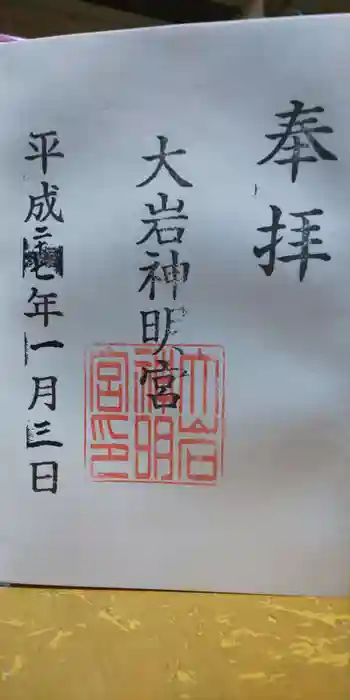 奉拝
大岩神明宮
大岩神明宮印
平成二十七年一月三日